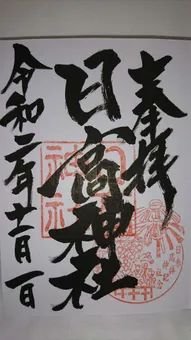 奉拝
日高神社
令和二年十一月一日